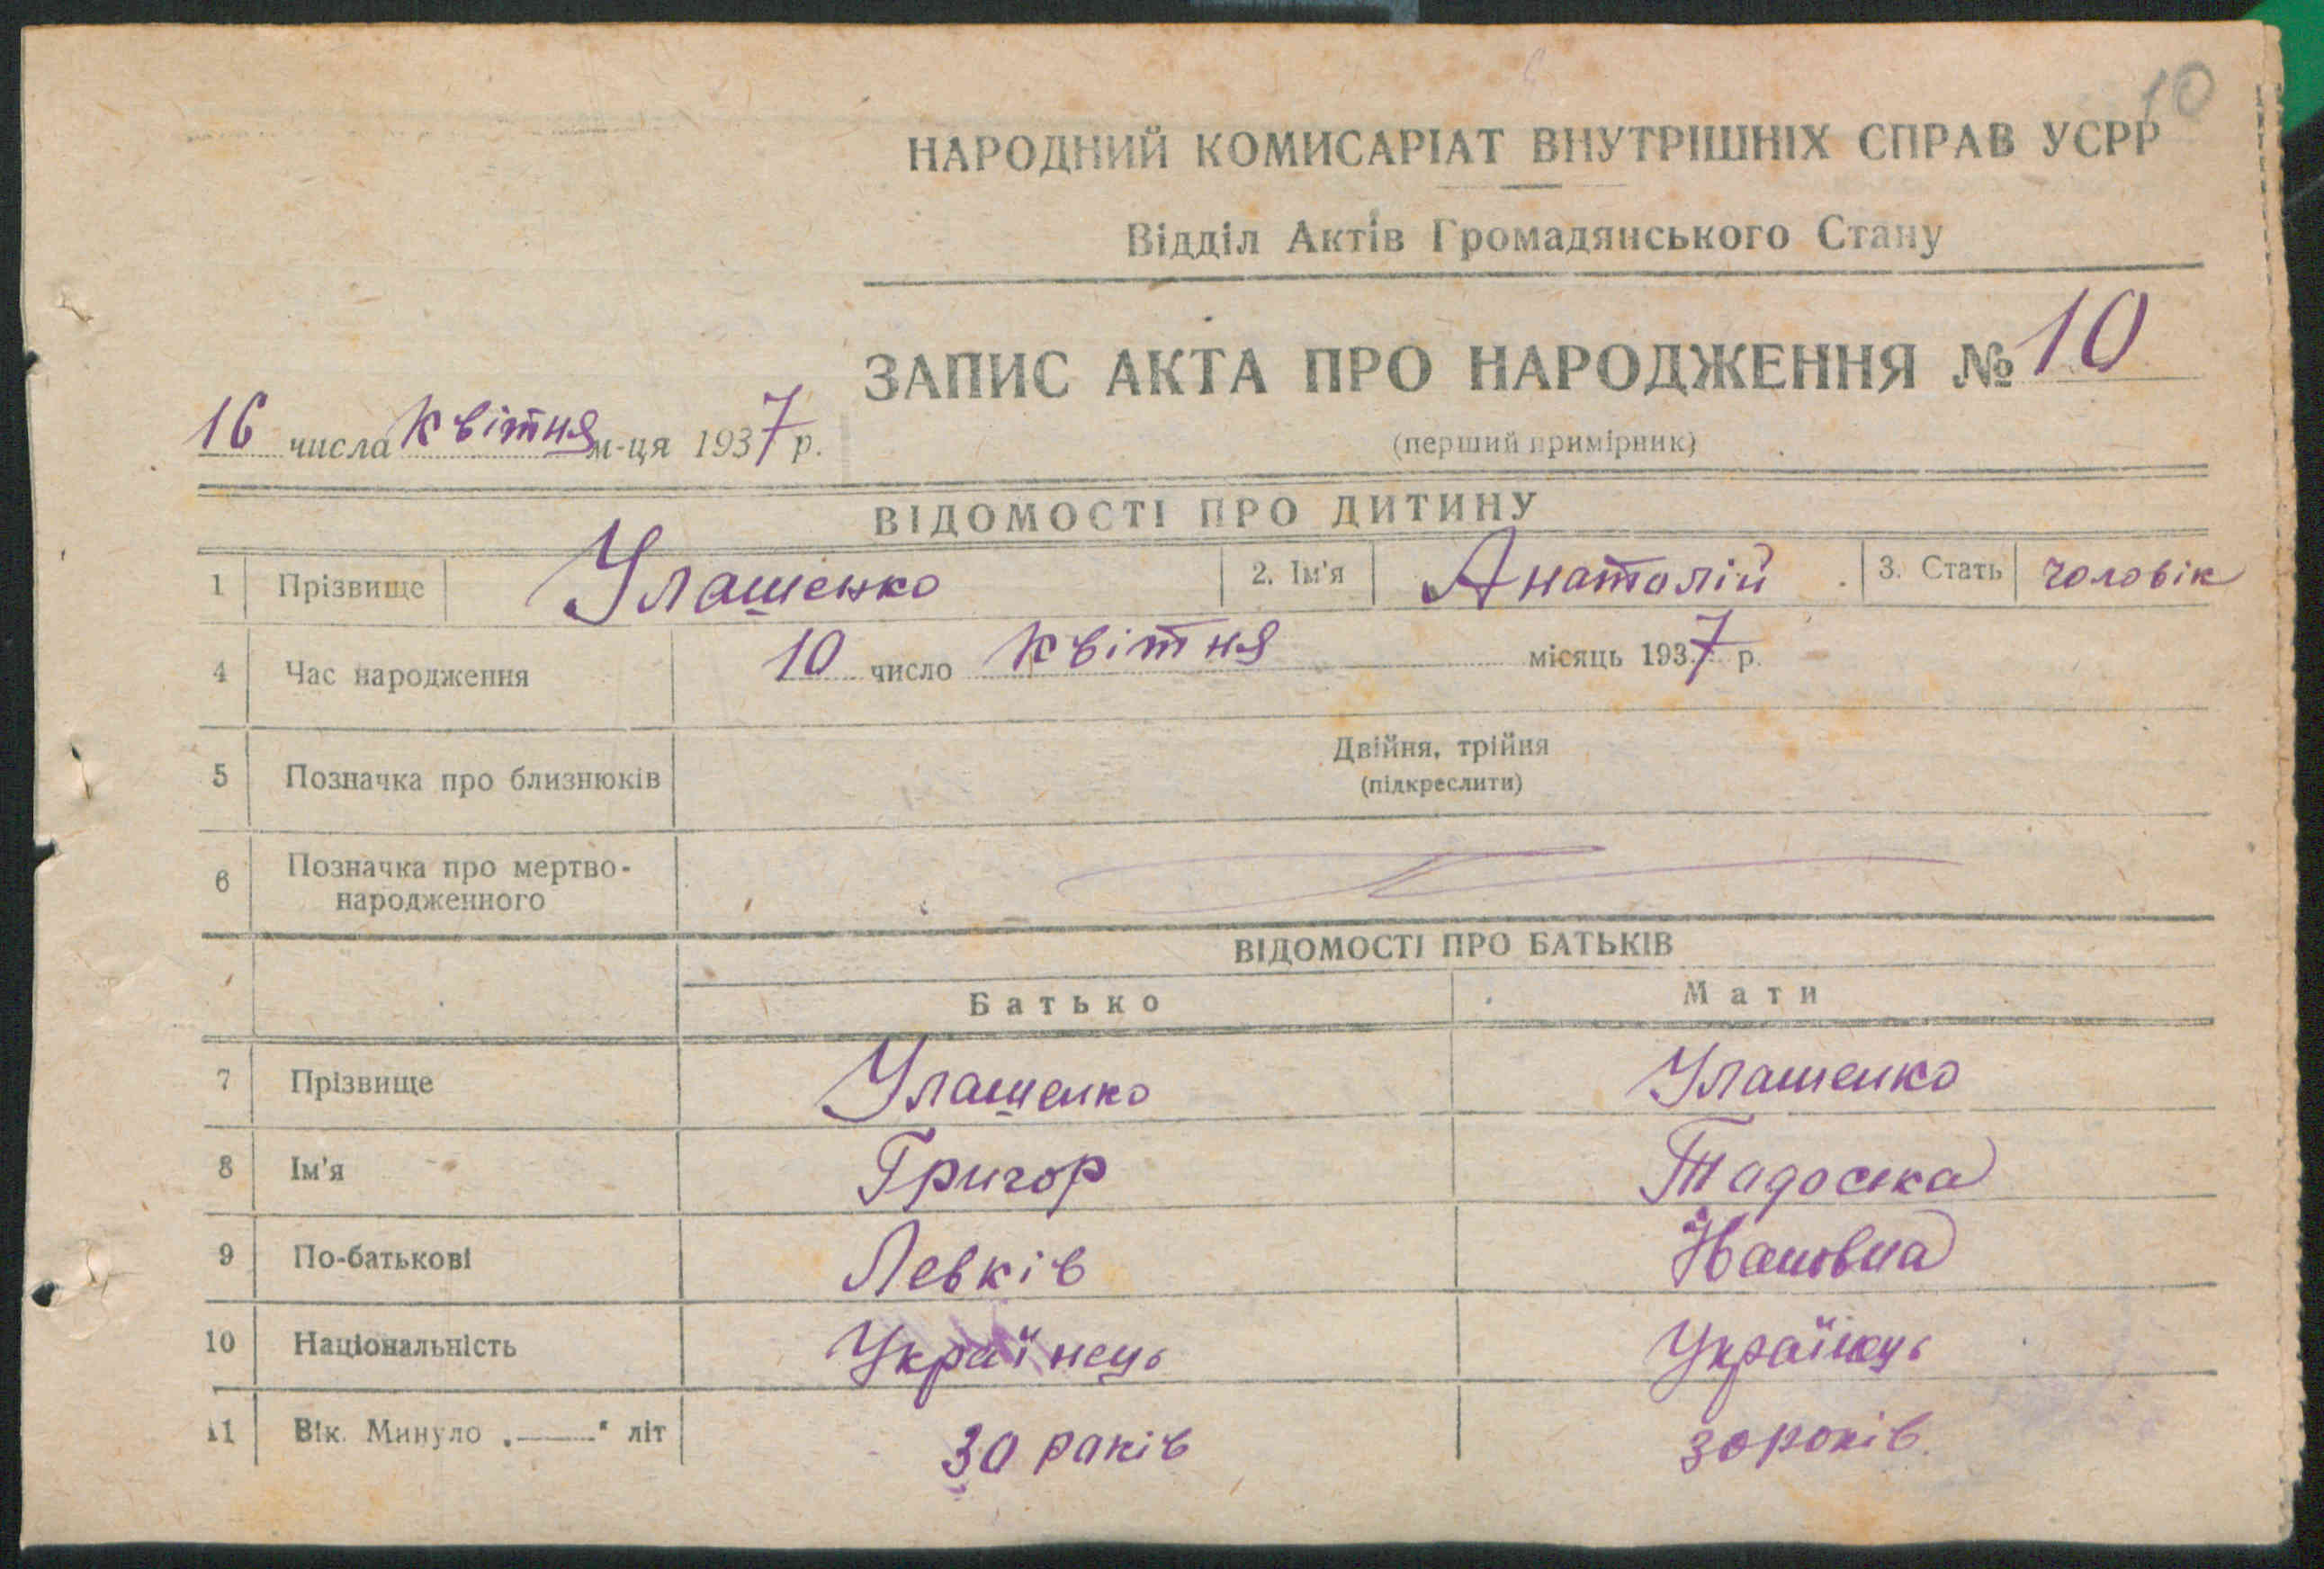 10
НАРОДНИЙ КОМИСАРІАТ ВНУТРІШНІХ СПРАВ УСРР
Відділ Актів Громадянського Стану
ЗАПИС АКТА ПРО НАРОДЖЕННЯ № 10
16 числа квітня м-ця 1937 р.
(перший примірник)
ВІДОМОСТІ ПРО ДИТИНУ
1 Прізвище Улашенко 2. Ім'я Анатолій 3. Стать чоловік
4 Час народження 10 число квітня місяць 1937 р.
5 Позначка про близнюків Двійня, трійня
(підкреслити)
6 Позначка про мертво-
народженного
ВІДОМОСТІ ПРО БАТЬКІВ
Батько Мати
7 Прізвище Улашенко Улашенко
8 Ім'я Григор Тадоська
9 По-батькові Левків
10 Національність Українець
11 Вік. Минуло „——“ літ 30 раків 30 років